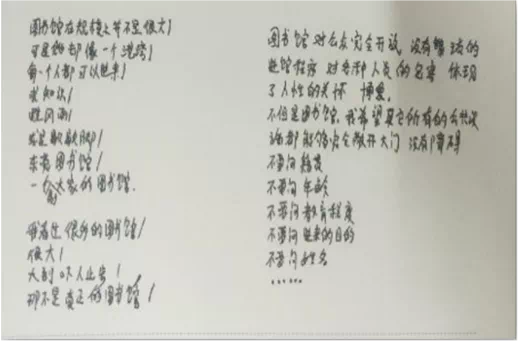 图书馆在规模上并不是很大！
可是她却像一个港湾！
每一个人都可以进来！
求知识！
避风雨！
或是歇歇脚！
东莞图书馆！
一个大家的图书馆.
我看过很多的图书馆！
很大！
大到吓人止步！
那不是真正的图书馆！
图书馆对公众完全开放，没有繁琐的
进馆程序 对各种人员的包容 体现
了人性的关怀 博爱。
不但是图书馆，我希望其它所有的公共设
施都能够完全敞开大门 没有障碍
不要问籍贯
不要问年龄
不要问教育程度
不要问进来的目的
不要问姓名
......